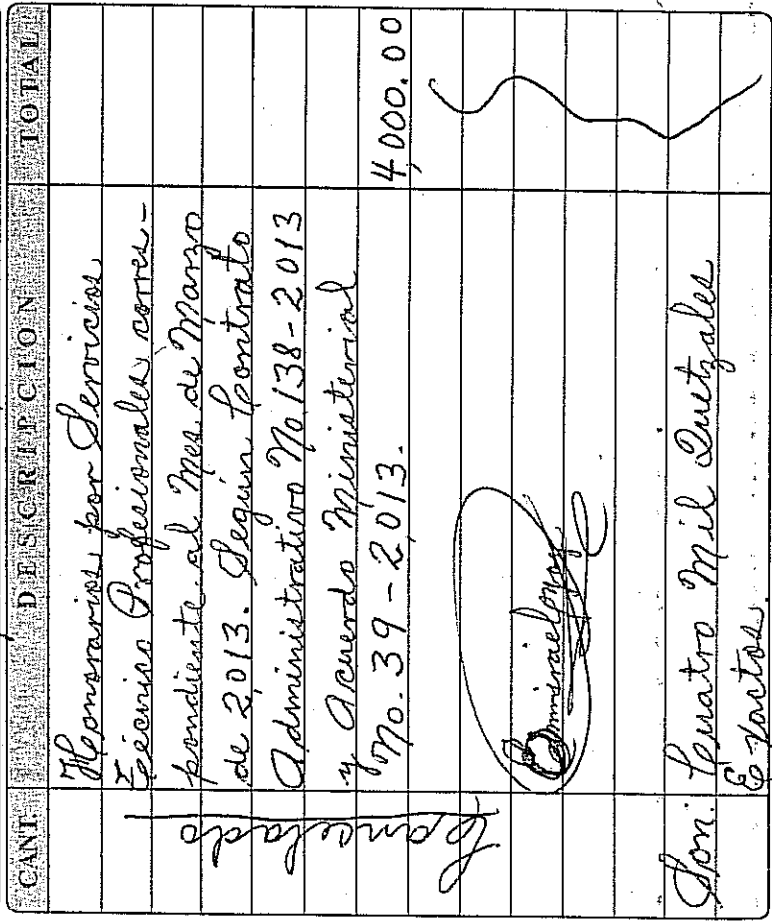 CANT. DESCRIPCION TOTAL
Honorarios por Servicios
Técnico Profesionales corres-
pondiente al Mes de Marzo
de 2,013. Según Contrato
Administrativo No 138-2013
y Acuerdo Ministerial
No. 39-2,013. 4,000.00
Cancelado
Son: Cuatro Mil Quetzales
Exactos